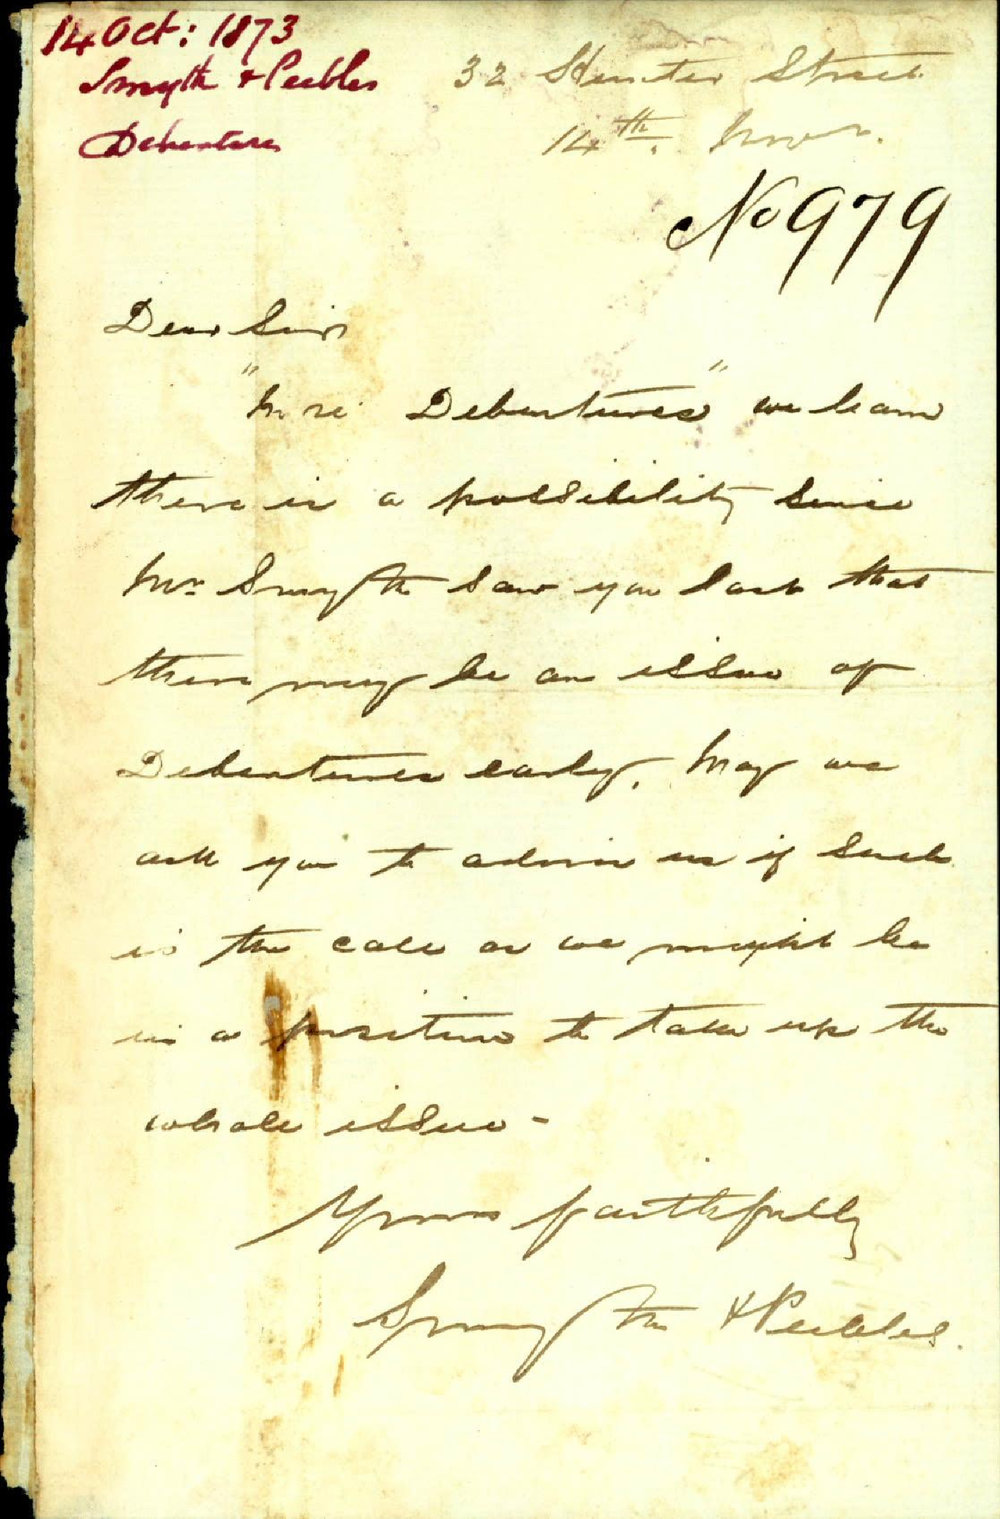 14 Oct: 1873
Smyth & Peebles
Debentures
32 Hunter Street
14th. Novr.
No 979
Dear Sir
"In re Debentures" we learn
there is a possibility since
Mr Smyth saw you last that
there may be an issue of
Debentures early, May we
ask you to advise us if such
is the case as we might be
in a position to take up the
whole issue -
Yours faithfully
Smyth & Peebles.